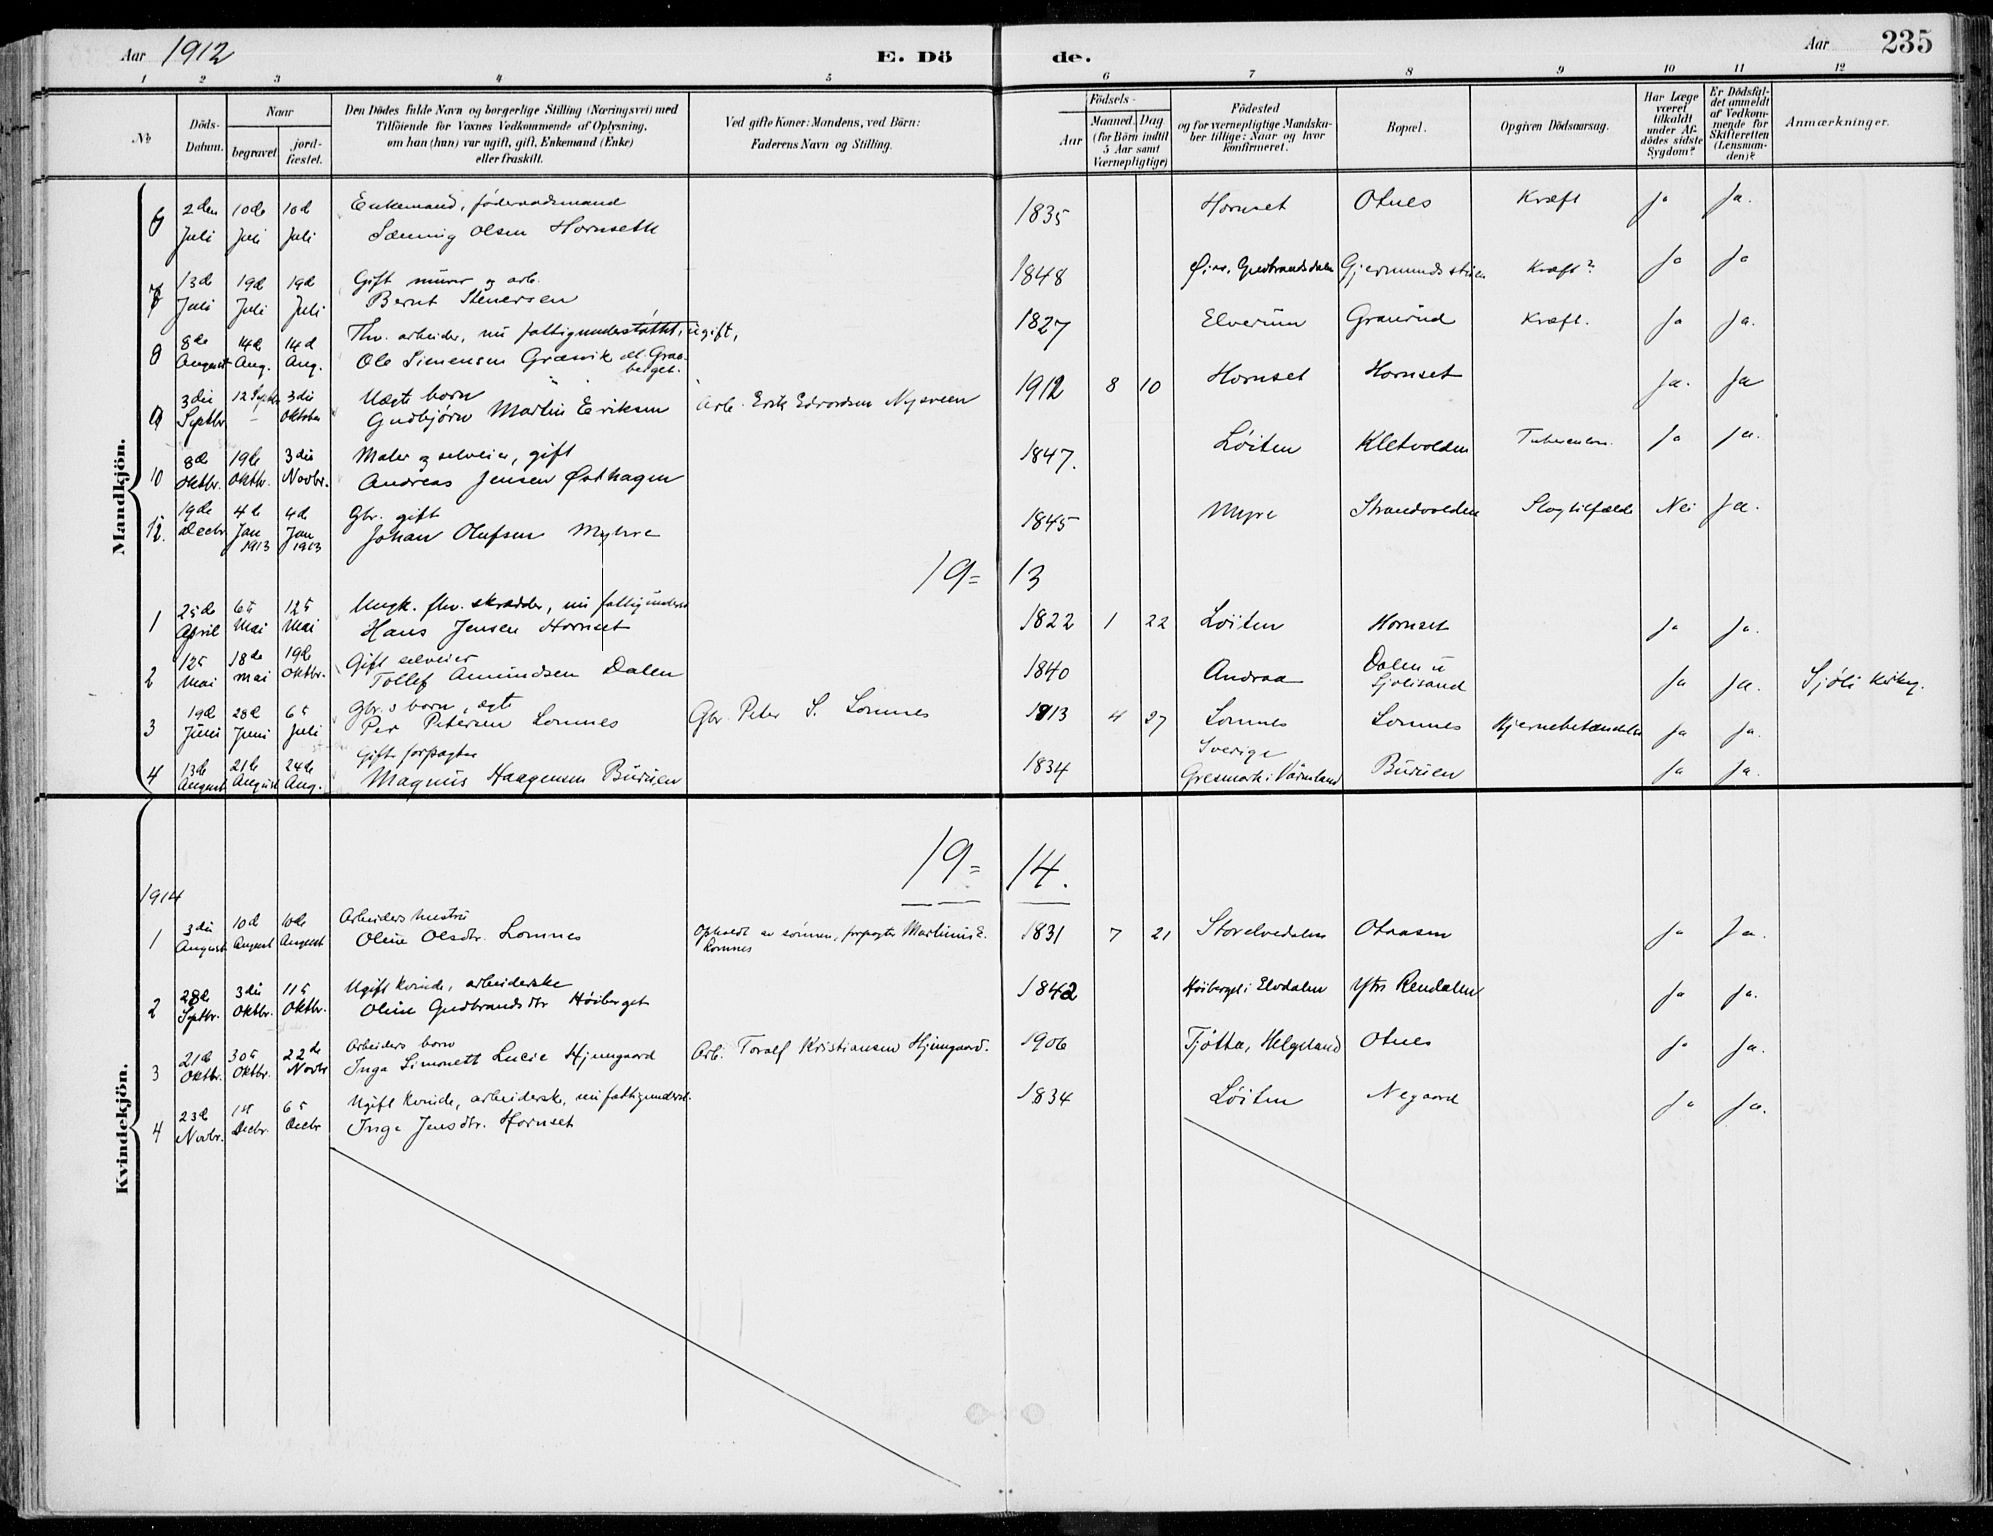 Aar 1912
E. Dö de.
Aar
235
1 2 3 4 5 6 7 8 9 10 11 12
№
Döds-Datum.
Naar
begravet.
jord-fæstet.
Den Dödes fulde Navn og borgerlige Stilling (Næringsvei) med
Tilföiende for Voxnes Vedkommende af Oplysning,
om han (hun) var ugift, gift, Enkemand (Enke)
eller fraskilt.
Ved gifte Koner: Mandens, ved Börn:
Faderens Navn og Stilling.
Födsels-
Aar
Maaned. Dag
(for Börn indtil
5 Aar samt
Værnepligtige)
Födested
og for værnepligtige Mandska-
ber tillige: Naar og hvor
konfirmeret.
Bopæl.
Opgiven Dödsaarsag.
Har Læge
været
tilkaldt
under Af-
dödes sidste
Sygdom?
Er Dödsfal-
det anmeldt
af Vedkom-
mende for
Skifteretten
(Lensman-
den)?
Anmærkninger.
Mandkjön.
6 2den Juli 10de Juli 10d Juli Enkemand, föderaadsmand
Sæming Olsen Hornseth 1835 Hornset Otnes Kræft Ja Ja.
7 13de Juli 19d Juli 19d Juli Gift murer og arb.
Bernt Stenersen 1848 Øier, Gudbrandsdalen Gjermundstuen Kræft? Ja Ja
8de August 14de Aug. 14d Aug. Fhv. arbeider, nu fattigunderstøttet, ugift,
Ole Simensen Græsvik 1827 Elverum Granrud Kræft. Ja Ja.
9 3die Septbr. 12 Septbr 3die Oktober Uægt barn
Gudbjørn Martin Eriksen Arb. Erik Edvardsen Nysveen 1912 8 10 Hornset Hornset Ja. Ja
10 8de Oktbr. 19de Oktbr. 3die Novbr. Maler og selveier, gift
Andreas Jensen Østhagen 1847. Løiten Kletvolden Ja Ja.
12. 19de Decbr 4de Jan 1913 4de Jan 1913 Gbr. gift
Johan Olufsen Myhre 1845 Myre Strandvolden Slagtilfælde Nei Ja.
19= 13
1 25de April 6te Mai 12te Mai Ungk. fhv. skrædder, nu fattigunderst
Hans Jensen Hornset 1822 1 22 Løiten Hornset Ja Ja.
2 12te Mai 18de Mai 19de Oktbr. Gift selveier
Tollef Amundsen Dalen 1840 Andraa Dalen u Sjølisand Ja Ja. Sjøli kirkeg.
3 19de Juni 28de Juni 6te Juli Gbr.s barn, ægte
Per Petersen Lomnes Gbr. Peter S. Lomnes 1913 4 27 Lomnes Lomnes Hjernebetændelse Ja Ja.
4 13de August 21de August 24de Aug. Gift forpagter
Magnus Haagensen Buruen 1834 Sverige
Gresmark i Värmland Buruen Ja Ja.
Kvindekjön.
19= 14.
1914
1 3die August 10d August 10de August Arbeiders hustru
Oline Olsdtr. Lomnes Opholdt av sönnen, forpagter Martinus E. Lomnes 1831 7 21 Storelvedalen Otnesen Ja Ja.
2 28de Septbr. 3die Oktbr. 11te Oktbr. Ugift kvinde, arbeiderske
Oline Gudbrandsdtr Høiberget 1842 Høiberget i Elvdalen Ytre Rendalen Ja Ja.
3 21de Oktbr. 30te Oktbr. 22de Novbr Arbeiders barn
Inga Simonett Lucie Hjemgaard Arb. Toralf Kristiansen Hjemgaard. 1906 Tjøtta, Helgeland Otnes Ja Ja.
4 23de Novbr. 1ste Decbr. 6te Decbr Ugift kvinde, arbeiderske, nu fattigunderst.
Inga Jensdtr. Hornset 1834 Løiten Negaard Ja Ja.